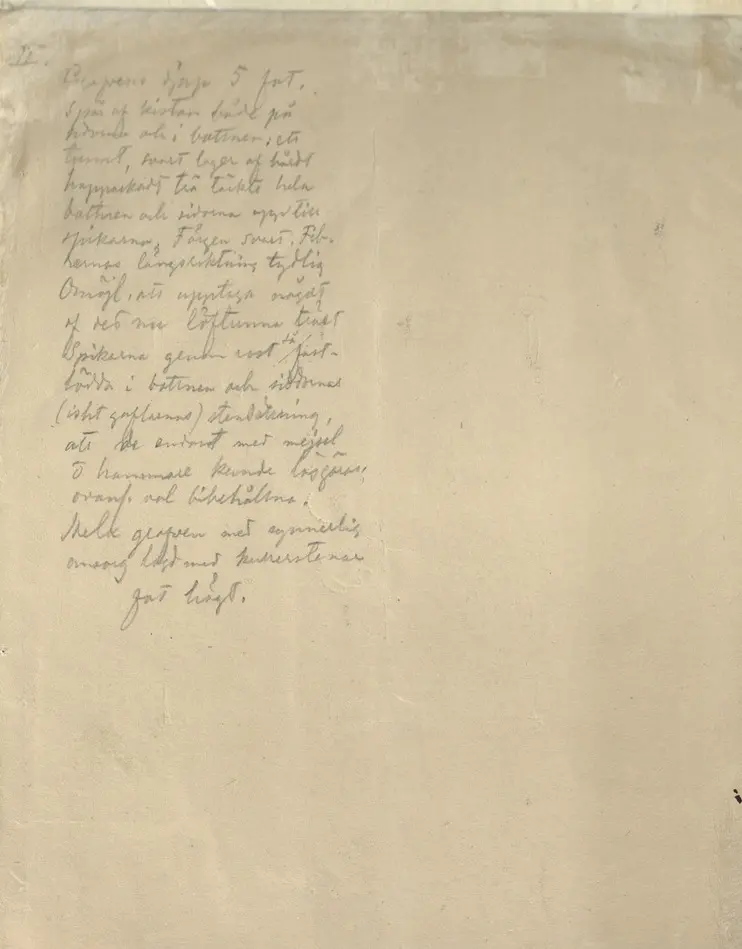 IV.
djup 5 fot.
Spår af kistan både på
sidorna och i bottnen; ett
tunnt, svart lager af hårdt
hoppackadt trä täckte hela
bottnen och sidorna upp till
spikarna. Färgen svart. Fib-
rernas längsriktning tydlig
Omöjl. att upptaga något
af det nu löstunna träet
Spikarna genom rost så fast-
lödda i bottnen och sidornas
(isht gaflarnas) stensättning,
att de endast med mejsel
o hammare kunde lösgöras;
ovanl. väl bibehållna.
Hela grafven med synnerlig
omsorg lagd med kullerstenar
fot högt.